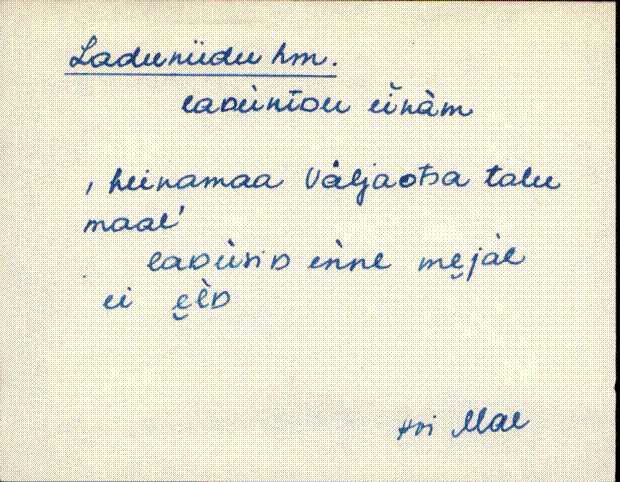 Laduniidu hm.
laDùnīDu èi̮nàm
, heinamaa Väljaotsa talu
maal'
laDùsiD ènne me̮jàl
ei e̮lD
Hri Mae